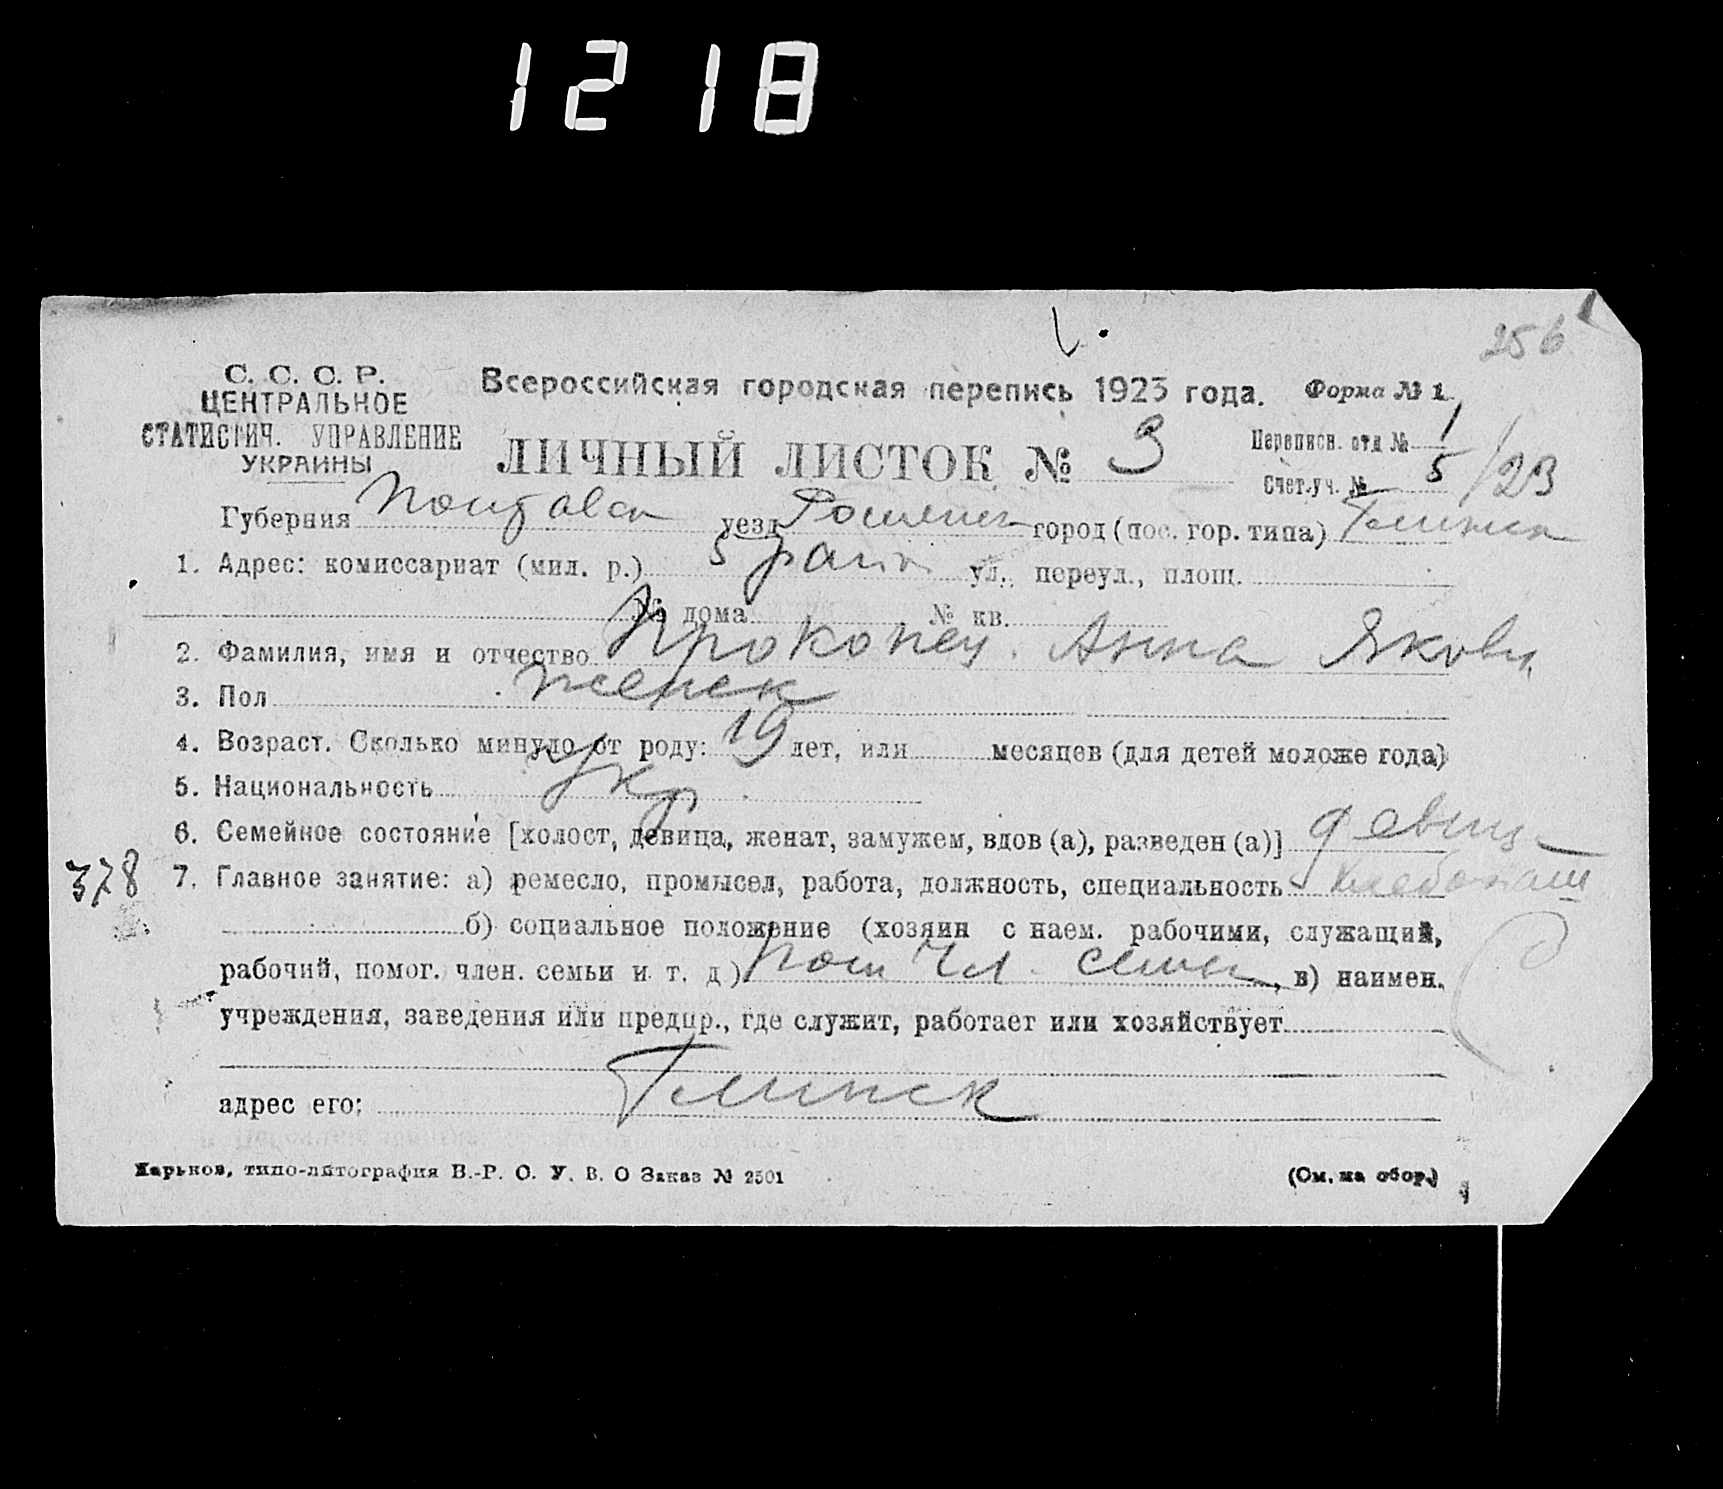 1218
256
С. С. С. Р.
ЦЕНТРАЛЬНОЕ
СТАТИСТИЧ. УПРАВЛЕНИЕ
УКРАИНЫ
Всероссийская городская перепись 1923 года. Форма № 1.
ЛИЧНЫЙ ЛИСТОК № 3
Переписн. отд № 1
Счет.уч. № 5 /23
Губерния уезд Роменск город (пос. гор. типа) Глинск
1. Адрес: комиссариат (мил. р.) 5 район ул., переул., площ.
№ дома № кв.
2. Фамилия, имя и отчество Прокопец Анна Яковл.
3. Пол женск
4. Возраст. Сколько минуло от роду: 19 лет, или месяцев (для детей моложе года)
5. Национальность Укр
6. Семейное состояние [холост, девица, женат, замужем, вдов (а), разведен (а)] девиц
378
7. Главное занятие: а) ремесло, промысел, работа, должность, специальность хлебопаш
б) социальное положение (хозяин с наем. рабочими, служащий,
рабочий, помог. член. семьи и т. д.) пом чл. семьи, в) наимен.
учреждения, заведения или предпр., где служит, работает или хозяйствует
адрес его: Глинск
Харьков, типо-литография В.-Р. О. У. В. О Заказ № 2501 (См. на обор.)